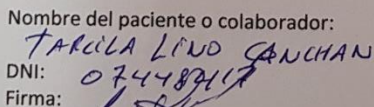 Nombre del paciente o colaborador:
TARCILA LINO CANCHAN
DNI:
Firma: